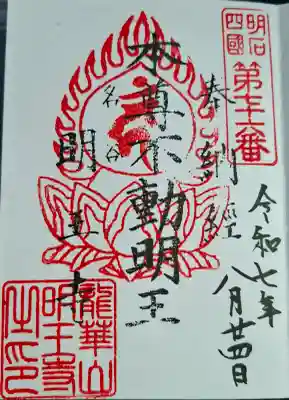 明石
四國
奉納經
令和七年
八月廿四日
本尊不動明王
名谷
明王寺
龍華山
明王寺
之印